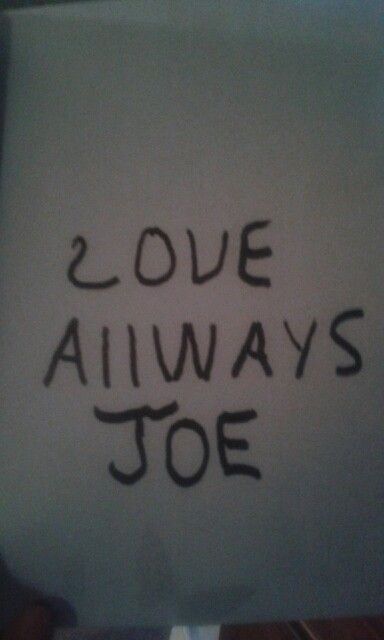 LOVE
AllWAYS
JOE